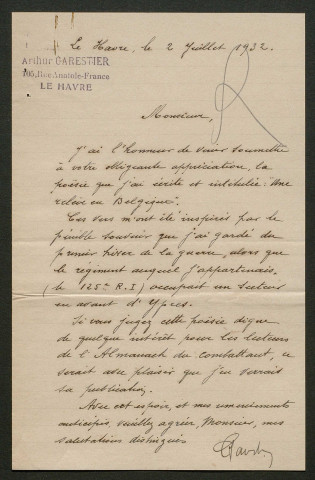 Le Havre, le 2 Juillet 1932.
Arthur GARESTIER
105, Rue Anatole-France
LE HAVRE
Monsieur,
J'ai l'honneur de venir soumettre
à votre obligeante appréciation, la
poésie que j'ai écrite et intitulée: "Une
relève en Belgique".
Ces vers m'ont été inspirés par le
pénible souvenir que j'ai gardé du
premier hiver de la guerre, alors que
le régiment auquel j'appartenais
(le 125e R.I) occupait un secteur
en avant d'Ypres.
Si vous jugez cette poésie digne
de quelque intérêt pour les lecteurs
de l'Almanach du combattant, ce
serait avec plaisir que j'en verrais
la publication.
Avec cet espoir, et mes remerciements
anticipés, veuillez agréer, Monsieur, mes
salutations distinguées